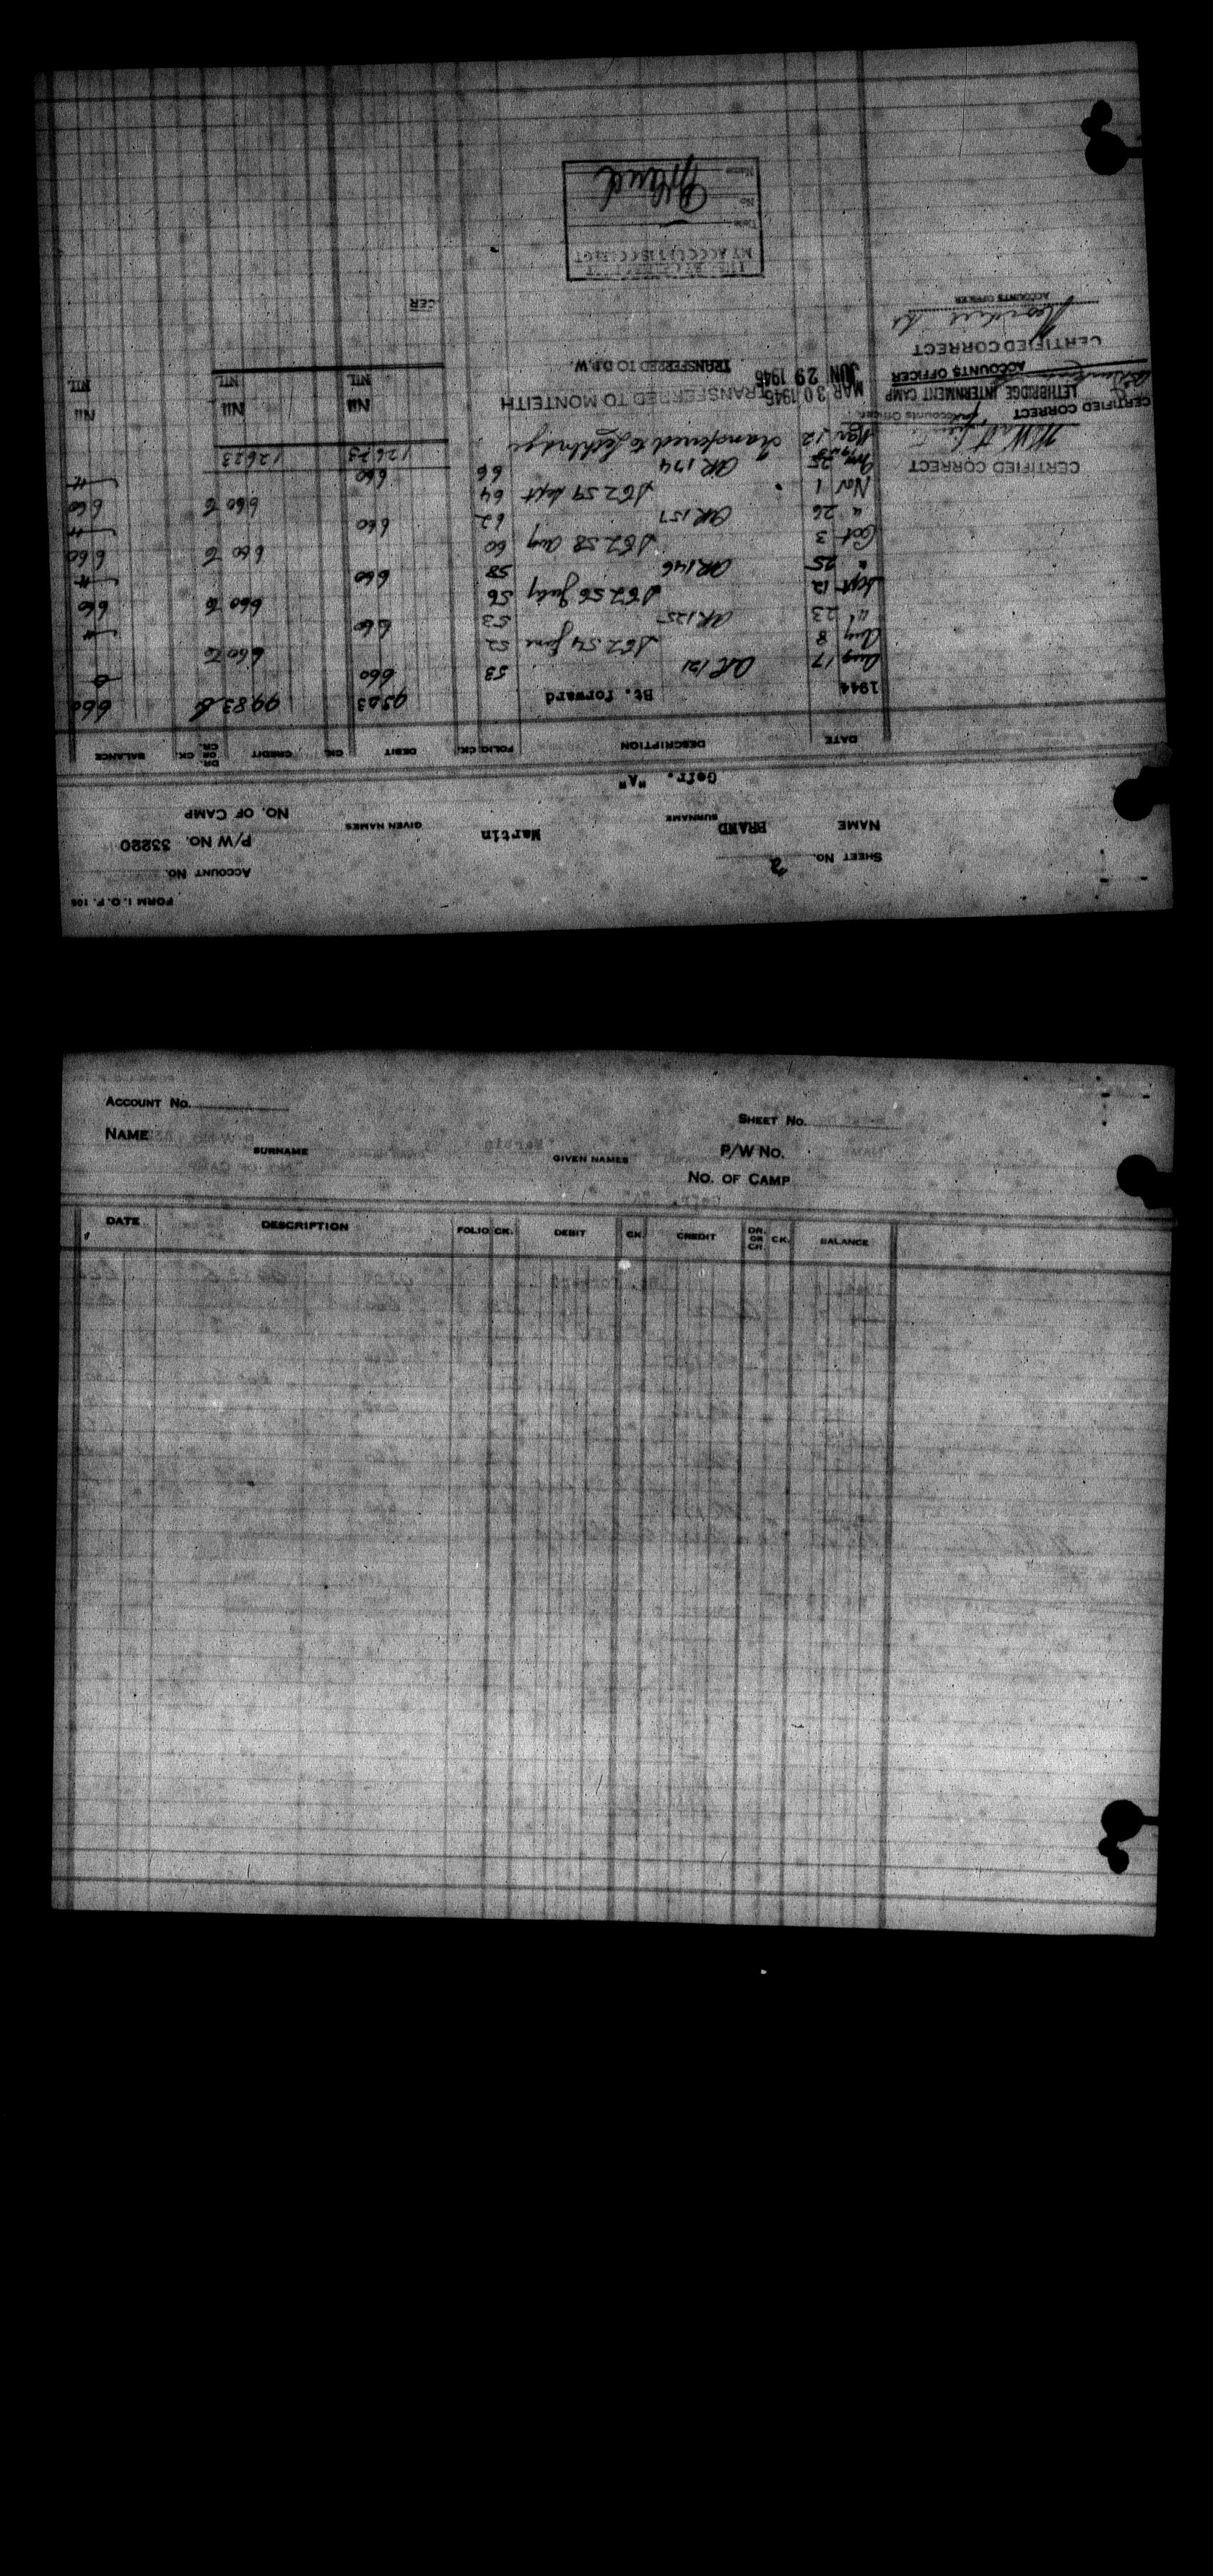 FORM I.O.F. 106
ACCOUNT NO.
SHEET NO. 2
P/W NO. 33220
NAME BRAND Martin
SURNAME GIVEN NAMES
NO. OF CAMP
Gefr. "A"
DATE DESCRIPTION FOLIO CK. DEBIT CK. CREDIT DR. OR CR. CK. BALANCE
1944 Bt. forward 9983 660
Aug 17 AR 121 53 660
Aug 8 S62 54 June 52 660
" 23 AR 125 53 660
Sept 12 S62 56 July 56 660 660
" 25 AR 146 58 660
Oct 3 S62 58 Aug 60 660 660
" 26 AR 157 62 660
Nov 1 S62 59 Sept 64 660 660
25 AR 174 66 660
12623 12623
CERTIFIED CORRECT
Mar 12 Transferred to Lethbridge
Accounts Officer
Nil Nil Nil
CERTIFIED CORRECT
MAR 30 1946 TRANSFERRED TO MONTEITH
LETHBRIDGE INTERNMENT CAMP
ACCOUNTS OFFICER
JUN 29 1946 TRANSFERRED TO D.P.W.
NIL NIL NIL
CERTIFIED CORRECT
ACCOUNTS OFFICER
CER
MY ACCOUNT IS CORRECT
Date
No.
Name
Brand
ACCOUNT NO.
SHEET NO.
NAME
SURNAME GIVEN NAMES
P/W NO.
NO. OF CAMP
DATE DESCRIPTION FOLIO CK. DEBIT CK. CREDIT DR. OR CR. CK. BALANCE